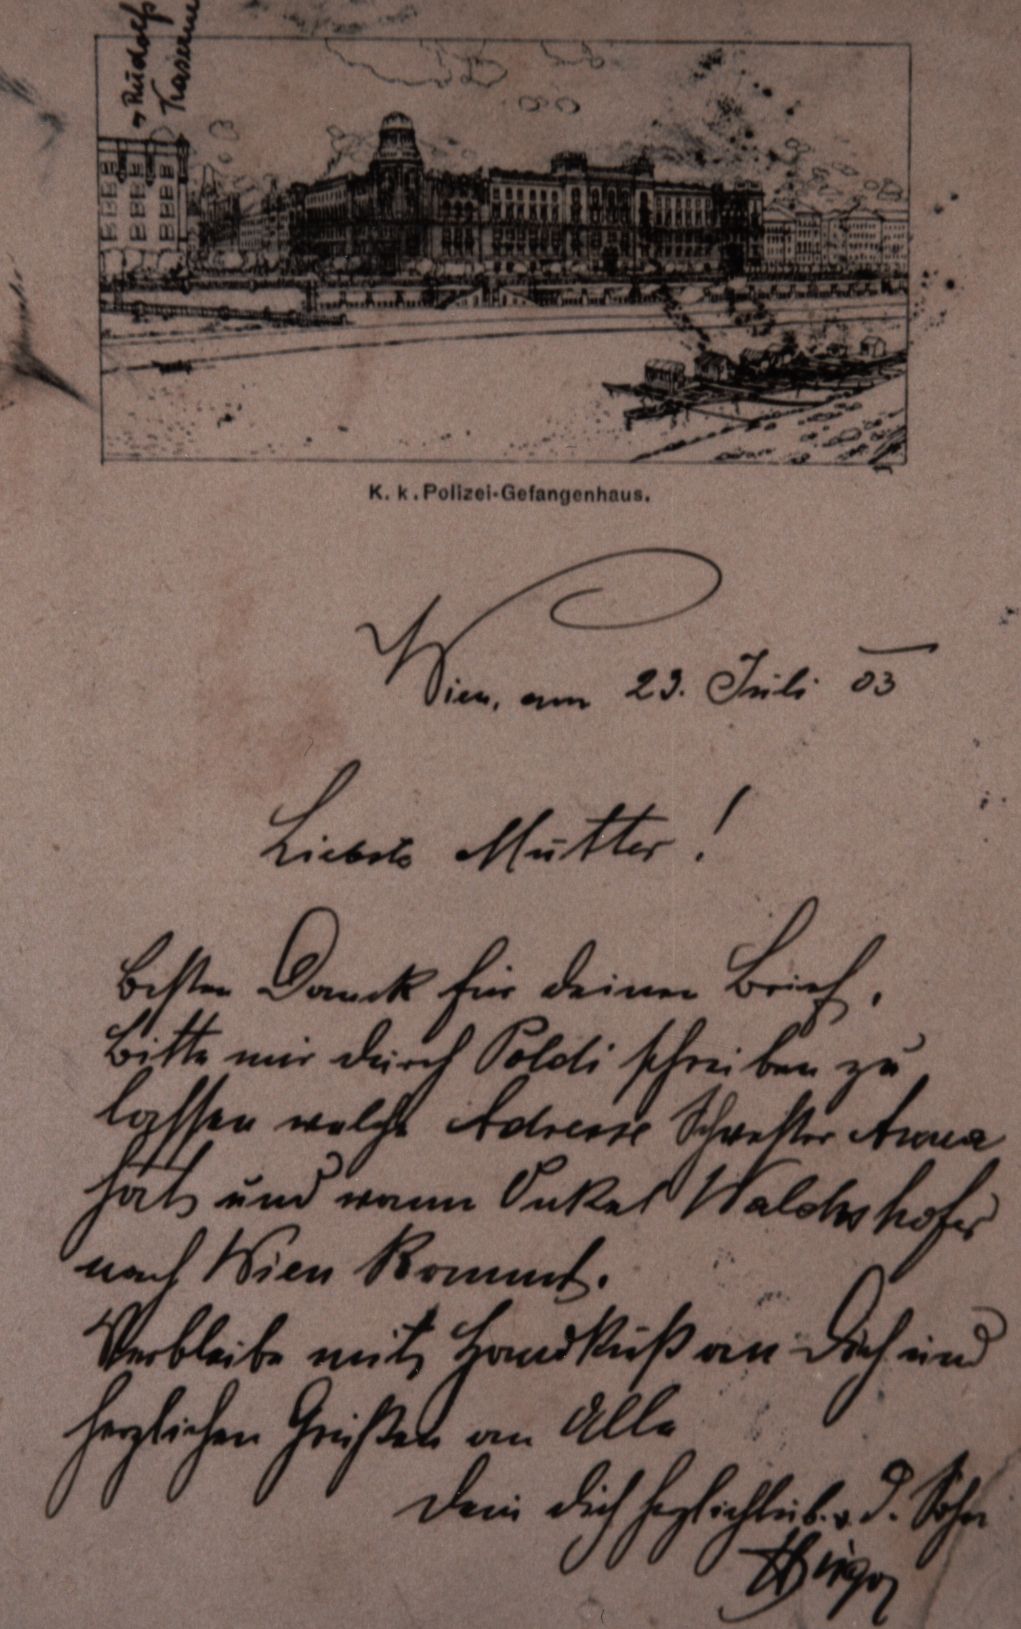 → Rudolfs
Kaserne
K. k. Polizei-Gefangenhaus.
Wien, am 23. Juli 03
Liebste Mutter!
Besten Danck für deinen Brief.
Bitte mir durch Poldi schreiben zu
lassen welche Adresse Schwester Anna
hat und wann Onkel Waldeshofer
nach Wien kommt.
Verbleibe mit Handkuß an Dich und
herzlichen Grüßen an Alle
Dein dich herzlichlieb. d. Sohn